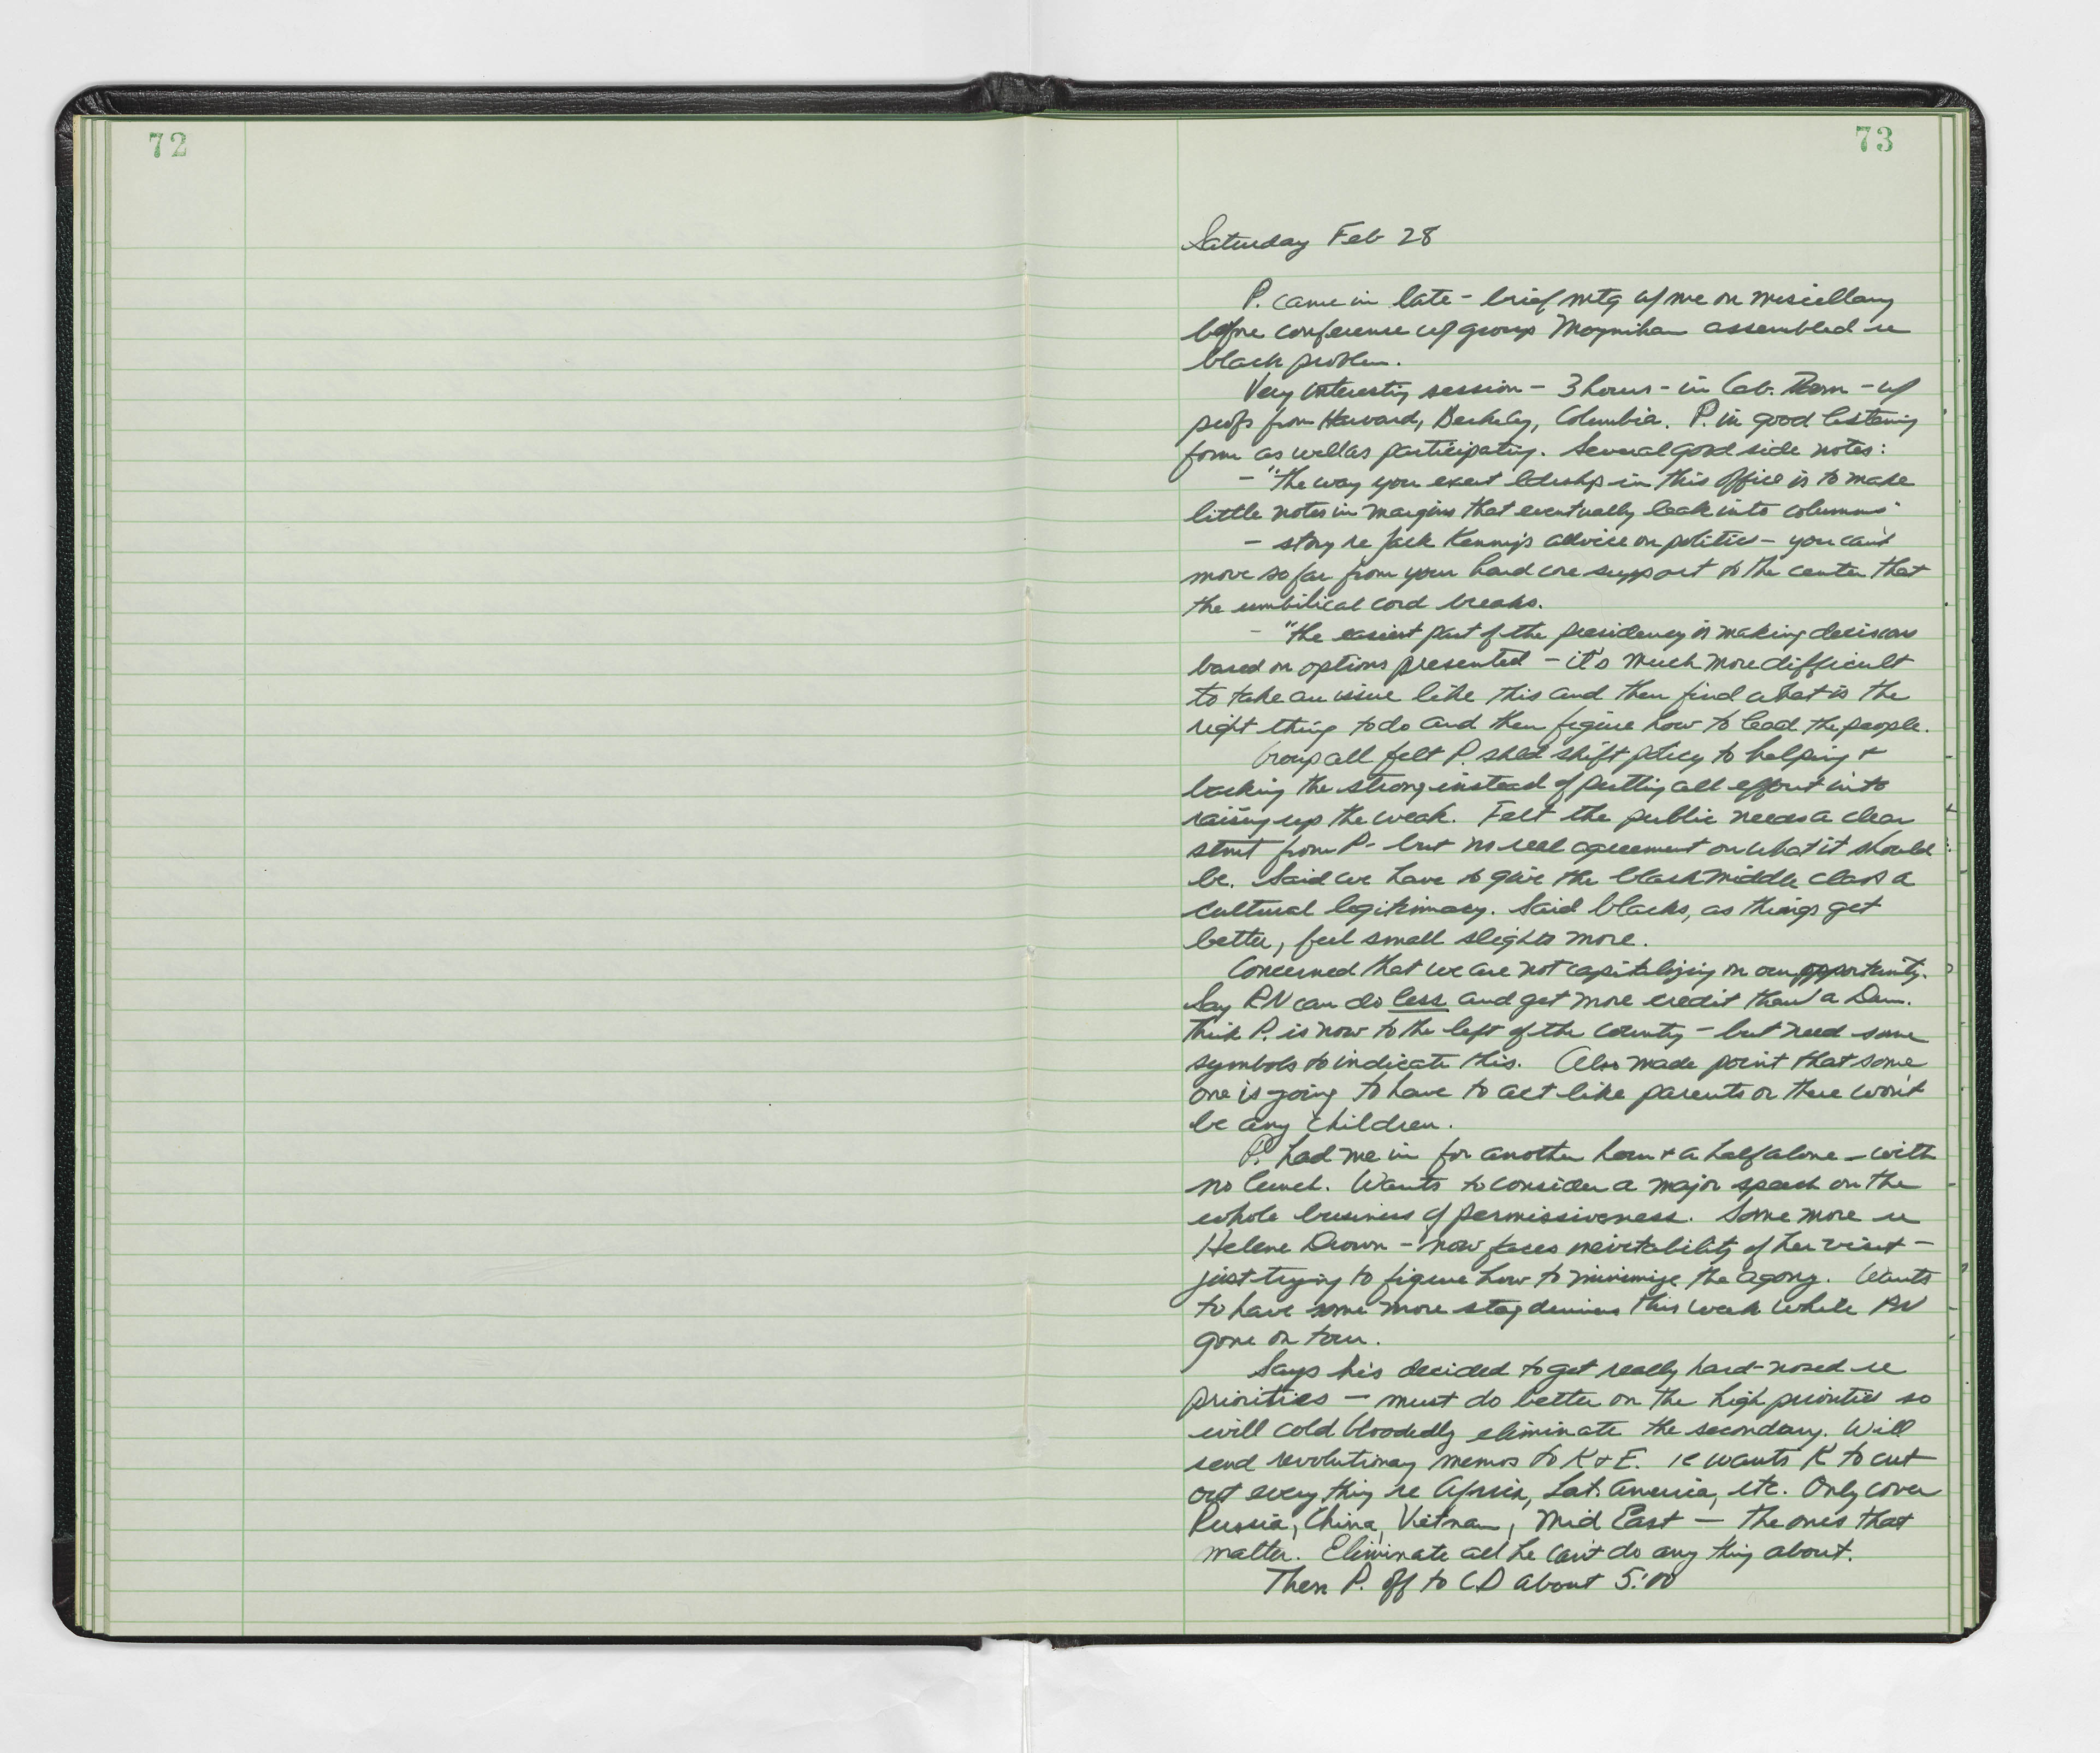 72
73
Saturday Feb 28
P. came in late - brief mtg w/ me on miscellany
before conference w/ group Moynihan assembled re
black problem.
Very interesting session - 3 hours - in Cab. Room - w/
profs from Harvard, Berkeley, Columbia. P. in good listening
form as well as participating. Several good side notes:
- "the way you exert ldrshp in this office is to make
little notes in margins that eventually leak into columns"
- story re Jack Kenny's advice on politics - you can't
move so far from your hard core support to the center that
the umbilical cord breaks.
- "the easiest part of the presidency is making decisions
based on options presented - it's much more difficult
to take an issue like this and then find what is the
right thing to do and then figure how to lead the people.
Group all felt P. shld shift policy to helping +
backing the strong instead of putting all effort into
raising up the weak. Felt the public needs a clear
stmt from P - but no real agreement on what it should
be. Said we have to give the black middle class a
cultural legitimacy. Said blacks, as things get
better, feel small slights more.
Concerned that we are not capitalizing on our opportunity.
Say RN can do less and get more credit than a Dem.
Think P. is now to the left of the country - but need some
symbols to indicate this. Also made point that some
one is going to have to act like parents or there won't
be any children.
P. had me in for another hour + a half alone - with
no lunch. Wants to consider a major speech on the
whole business of permissiveness. Some more re
Helene Drown - now faces inevitability of her visit -
just trying to figure how to minimize the agony. Wants
to have some more stag dinners this week while PN
gone on tour.
Says he's decided to get really hard-nosed re
priorities - must do better on the high priorities so
will cold bloodedly eliminate the secondary. Will
send revolutionary memos to K + E. ie wants K to cut
out everything re Africa, Lat. America, etc. Only cover
Russia, China, Vietnam, Mid East - the ones that
matter. Eliminate all he can't do any thing about.
Then P. off to CD about 5:00